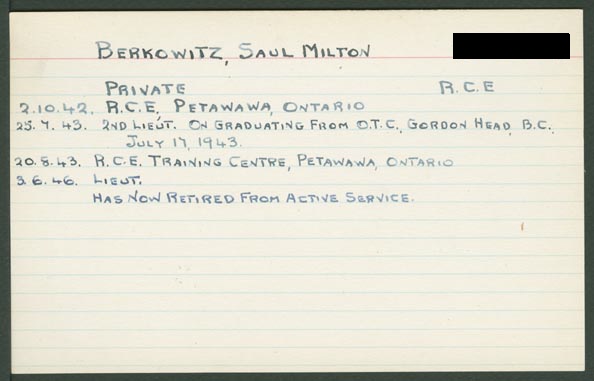 BERKOWITZ, SAUL MILTON
PRIVATE R.C.E
2.10.42. R.C.E. PETAWAWA, ONTARIO
25.7.43. 2ND LIEUT. ON GRADUATING FROM O.T.C., GORDON HEAD, B.C.,
JULY 17, 1943.
20.8.43. R.C.E. TRAINING CENTRE, PETAWAWA, ONTARIO
3.6.46. LIEUT.
HAS NOW RETIRED FROM ACTIVE SERVICE.